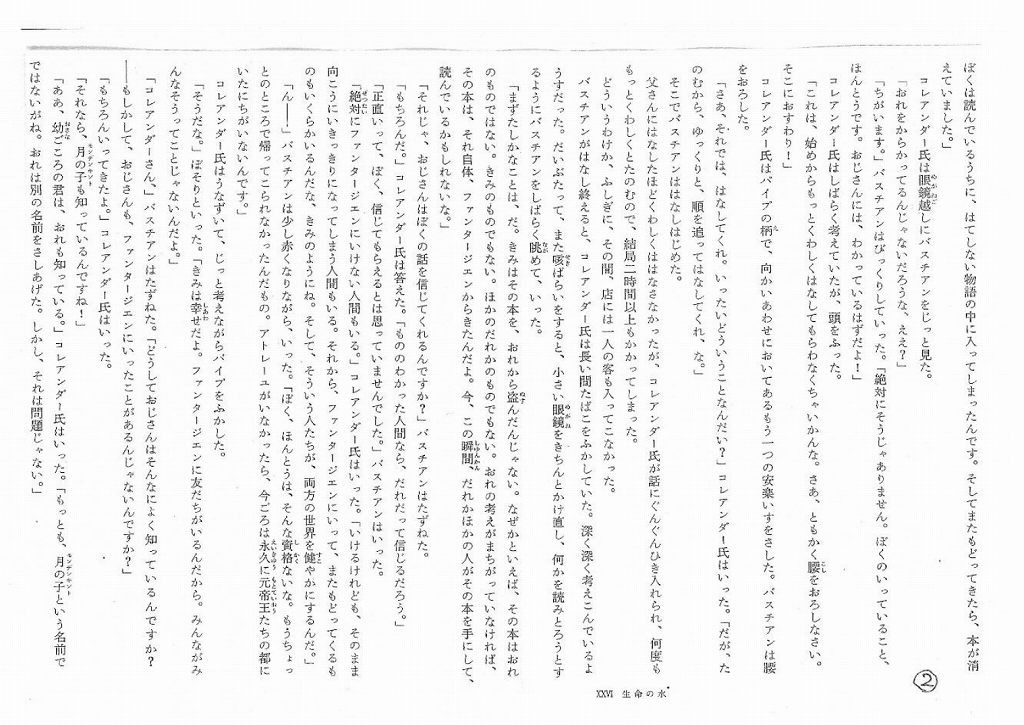 ぼくは読んでいるうちに、はてしない物語の中に入ってしまったんです。そしてまたもどってきたら、本が消
えていました。」
コレアンダー氏は眼鏡越しにバスチアンをじっと見た。
「おれをからかってるんじゃないだろうな、ええ？」
「ちがいます。」バスチアンはびっくりしていった。「絶対にそうじゃありません。ぼくのいっていること、
ほんとうです。おじさんには、わかっているはずだよ！」
コレアンダー氏はしばらく考えていたが、頭をふった。
「これは、始めからもっとくわしくはなしてもらわなくちゃいかんな。さあ、ともかく腰をおろしなさい。
そこにおすわり！」
コレアンダー氏はパイプの柄で、向かいあわせにおいてあるもう一つの安楽いすをさした。バスチアンは腰
をおろした。
「さあ、それでは、はなしてくれ。いったいどういうことなんだい？」コレアンダー氏はいった。「だが、た
のむから、ゆっくりと、順を追ってはなしてくれ、な。」
そこでバスチアンははなしはじめた。
父さんにはなしたほどくわしくははなさなかったが、コレアンダー氏が話にぐんぐんひき入れられ、何度も
もっとくわしくとたのむので、結局二時間以上もかかってしまった。
どういうわけか、ふしぎに、その間、店には一人の客も入ってこなかった。
バスチアンがはなし終えると、コレアンダー氏は長い間たばこをふかしていた。深く深く考えこんでいるよ
うすだった。だいぶたって、また咳ばらいをすると、小さい眼鏡をきちんとかけ直し、何かを読みとろうとす
るようにバスチアンをしばらく眺めて、いった。
「まずたしかなことは、だ。きみはその本を、おれから盗んだんじゃない。なぜかといえば、その本はおれ
のものではない。きみのものでもない。ほかのだれかのものでもない。おれの考えがまちがっていなければ、
その本は、それ自体、ファンタージエンからきたんだよ。今、この瞬間、だれかほかの人がその本を手にして、
読んでいるかもしれないな。」
「それじゃ、おじさんはぼくの話を信じてくれるんですか？」バスチアンはたずねた。
「もちろんだ。」コレアンダー氏は答えた。「もののわかった人間なら、だれだって信じるだろう。」
「正直いって、ぼく、信じてもらえるとは思っていませんでした。」バスチアンはいった。
「絶対にファンタージエンにいけない人間もいる。」コレアンダー氏はいった。「いけるけれども、そのまま
向こうにいきっきりになってしまう人間もいる。それから、ファンタージエンにいって、またもどってくるも
のもいくらかいるんだな、きみのようにね。そして、そういう人たちが、両方の世界を健やかにするんだ。」
「ん――」バスチアンは少し赤くなりながら、いった。「ぼく、ほんとうは、そんな資格ないな。もうちょっ
とのところで帰ってこられなかったんだもの。アトレーユがいなかったら、今ごろは永久に元帝王たちの都に
いたにちがいないんです。」
コレアンダー氏はうなずいて、じっと考えながらパイプをふかした。
「そうだな。」ぼそりといった。「きみは幸せだよ。ファンタージエンに友だちがいるんだから。みんながみ
んなそうってことじゃないんだよ。」
「コレアンダーさん、」バスチアンはたずねた。「どうしておじさんはそんなによく知っているんですか？
――もしかして、おじさんも、ファンタージエンにいったことがあるんじゃないんですか？」
「もちろんいってきたよ。」コレアンダー氏はいった。
「それなら、月の子も知っているんですね！」
「ああ、幼ごころの君は、おれも知っている。」コレアンダー氏はいった。「もっとも、月の子という名前で
ではないがね。おれは別の名前をさしあげた。しかし、それは問題じゃない。」
XXVI 生命の水
②